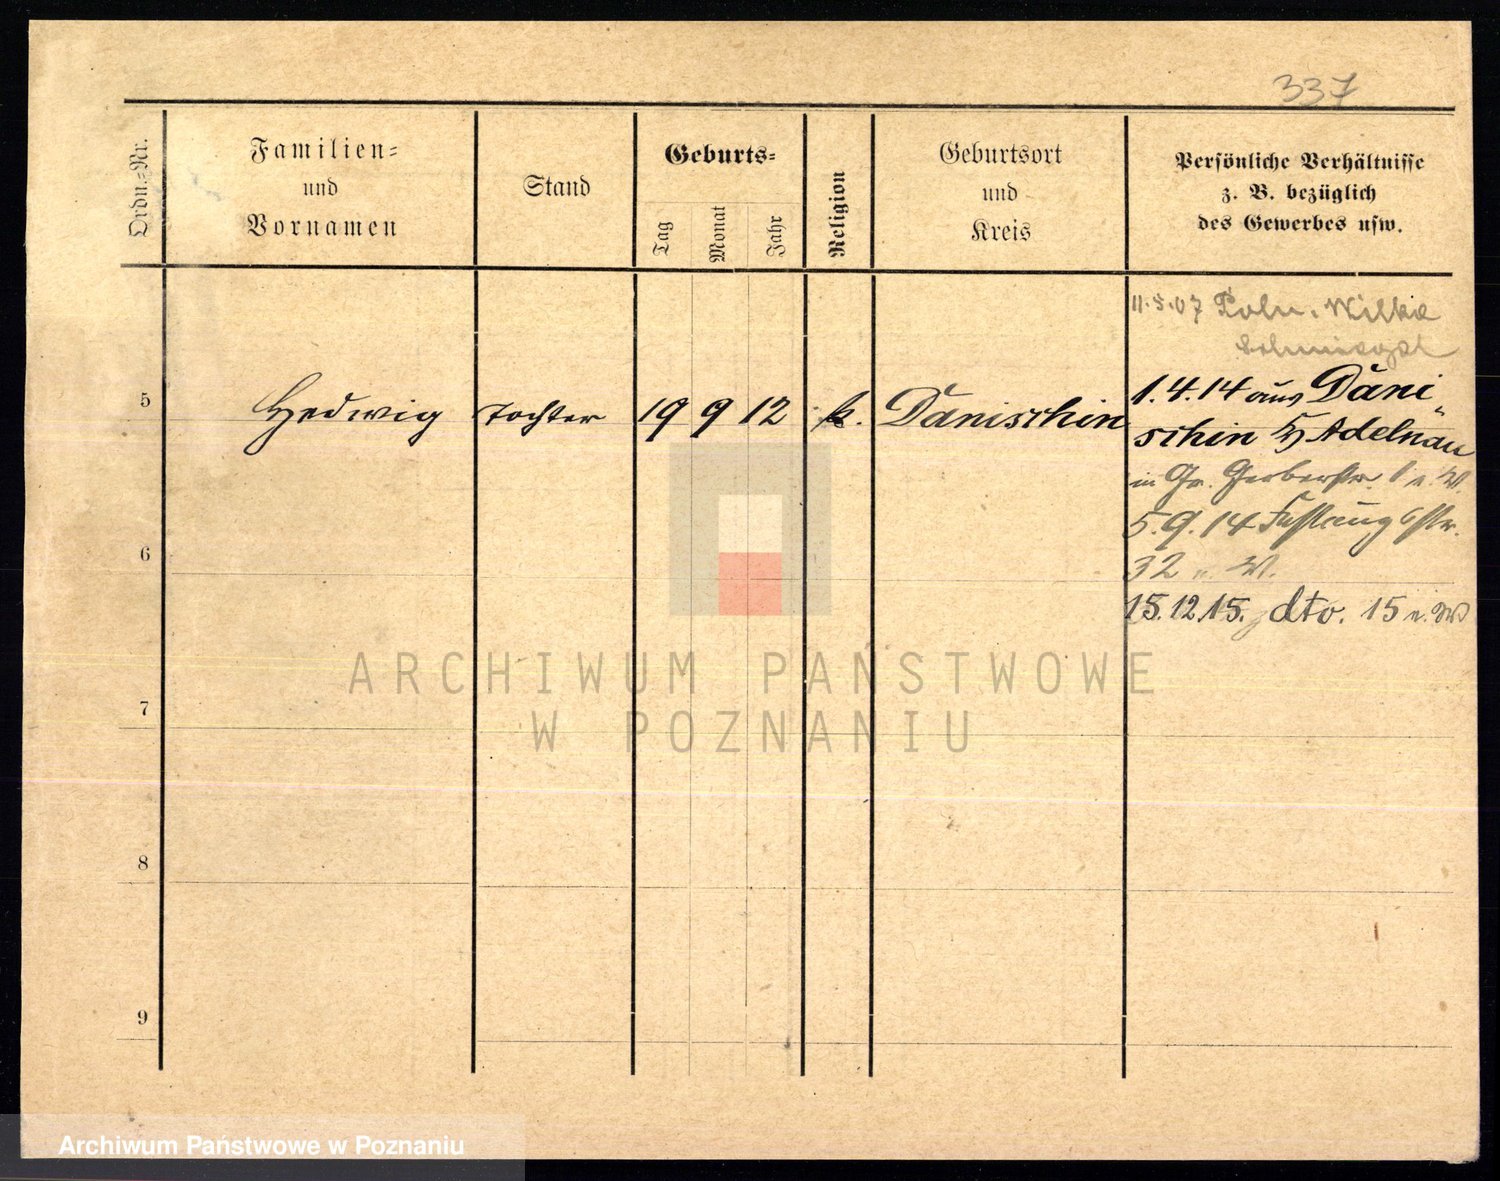 337
Ordn.-Nr.
Familien-
und
Vornamen
Stand
Geburts-
Tag
Monat
Jahr
Religion
Geburtsort
und
Kreis
Persönliche Verhältnisse
z. B. bezüglich
des Gewerbes usw.
11.5.07 Poln. Wilke
5 Hedwig Tochter 19 9 12 k. Dänischin
1.4.14 aus Däni
schin Adelnau
in Gr. Gerberstr.
5.9.14 Festungsstr.
32 W.
15.12.15. dto. 15
6
7
8
9
ARCHIWUM PAŃSTWOWE
W POZNANIU
Archiwum Państwowe w Poznaniu